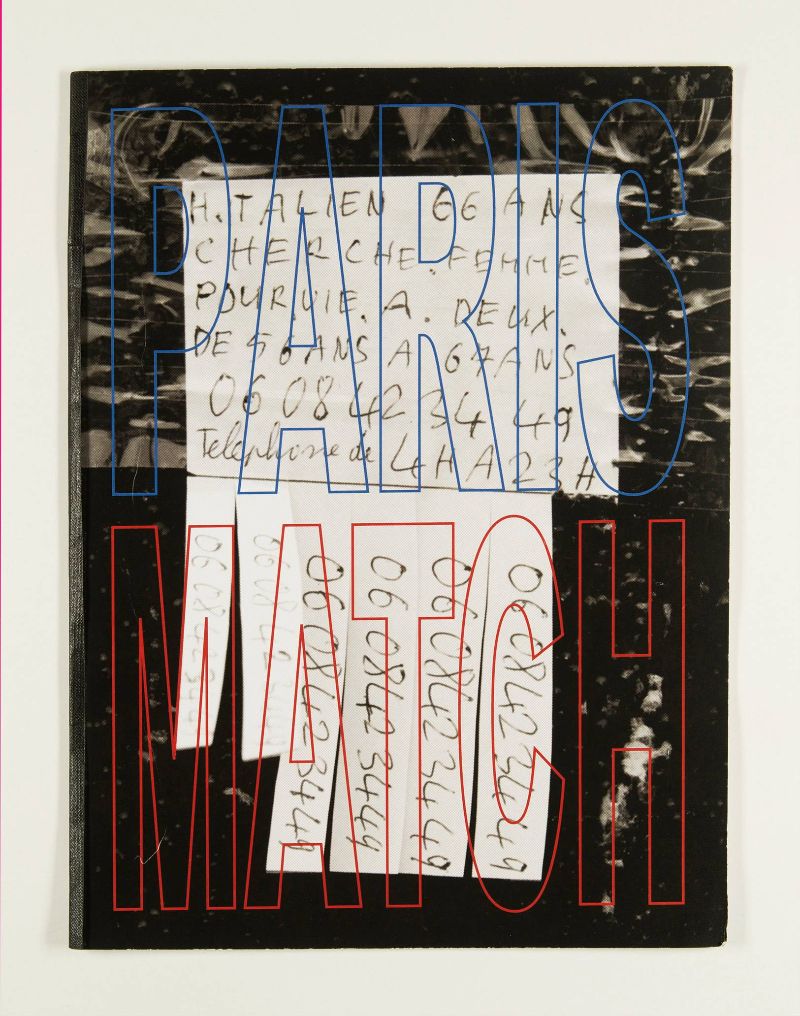 PARIS
H.TALIEN 66 ANS
CHERCHE.FEMME.
POUR VIE. A. DEUX.
DE 56ANS A 67ANS
06 08 42 34 49
Telephone de 4H A 23H
MATCH
06 08423449
06 08423449
06 08423449
06 08423449
06 08423449
06 08423449